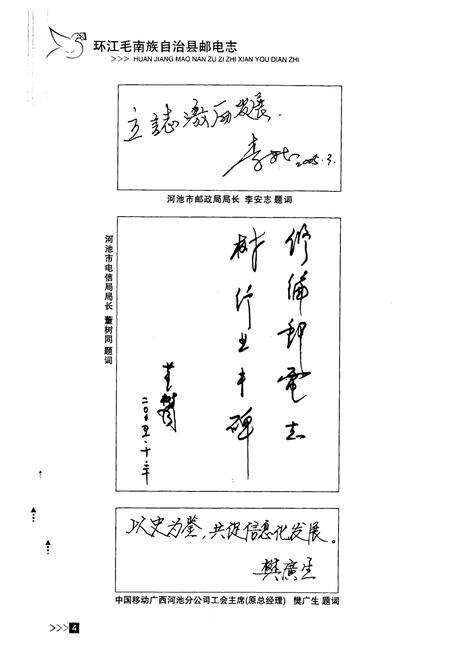 环江毛南族自治县邮电志
>>> HUAN JIANG MAO NAN ZU ZI ZHI XIAN YOU DIAN ZHI
立誌激历发展.
李 2005.3.
河池市邮政局局长 李安志 题词
修编邮電志
树行业丰碑
董树同
二00五.十.二
河池市电信局局长 董树同 题词
以史为鉴,共促信息化发展。
樊廣生
中国移动广西河池分公司工会主席(原总经理) 樊广生 题词
>>> 4